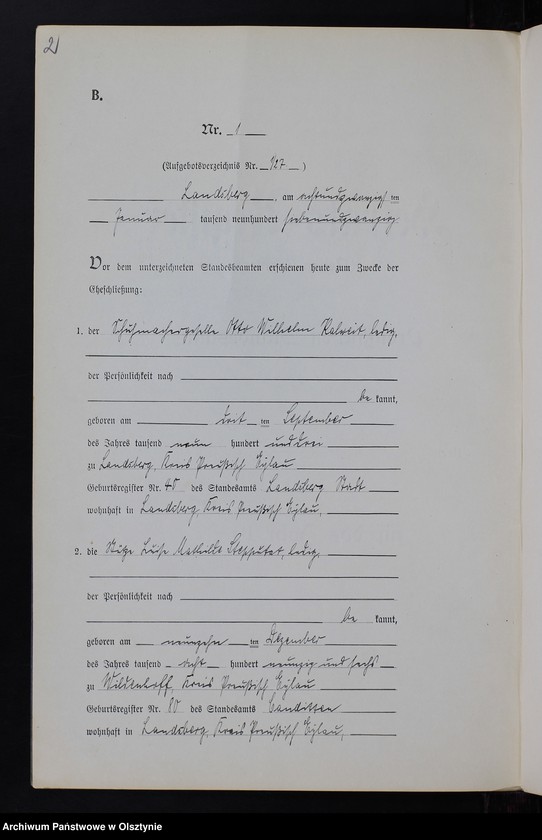 2
B.
Nr. 1
(Aufgebotsverzeichnis Nr. 1/27)
Landsberg, am achtundzwanzigsten
Januar tausend neunhundert siebenundzwanzig
Vor dem unterzeichneten Standesbeamten erschienen heute zum Zwecke der
Eheschließung:
1. der Schuhmachergeselle Otto Wilhelm Kalweit, ledig,
der Persönlichkeit nach
be kannt,
geboren am dritten September
des Jahres tausend neun hundert und drei
zu Landsberg, Kreis Preußisch Eylau
Geburtsregister Nr. 40 des Standesamts Landsberg Stadt
wohnhaft in Landsberg, Kreis Preußisch Eylau,
2. die Luise Mathilde ledig,
der Persönlichkeit nach
be kannt,
geboren am neunzehnten Dezember
des Jahres tausend acht hundert neunzig und sechs
zu Wildenhoff, Kreis Preußisch Eylau
Geburtsregister Nr. 80 des Standesamts Canditten
wohnhaft in Landsberg, Kreis Preußisch Eylau,
Archiwum Państwowe w Olsztynie